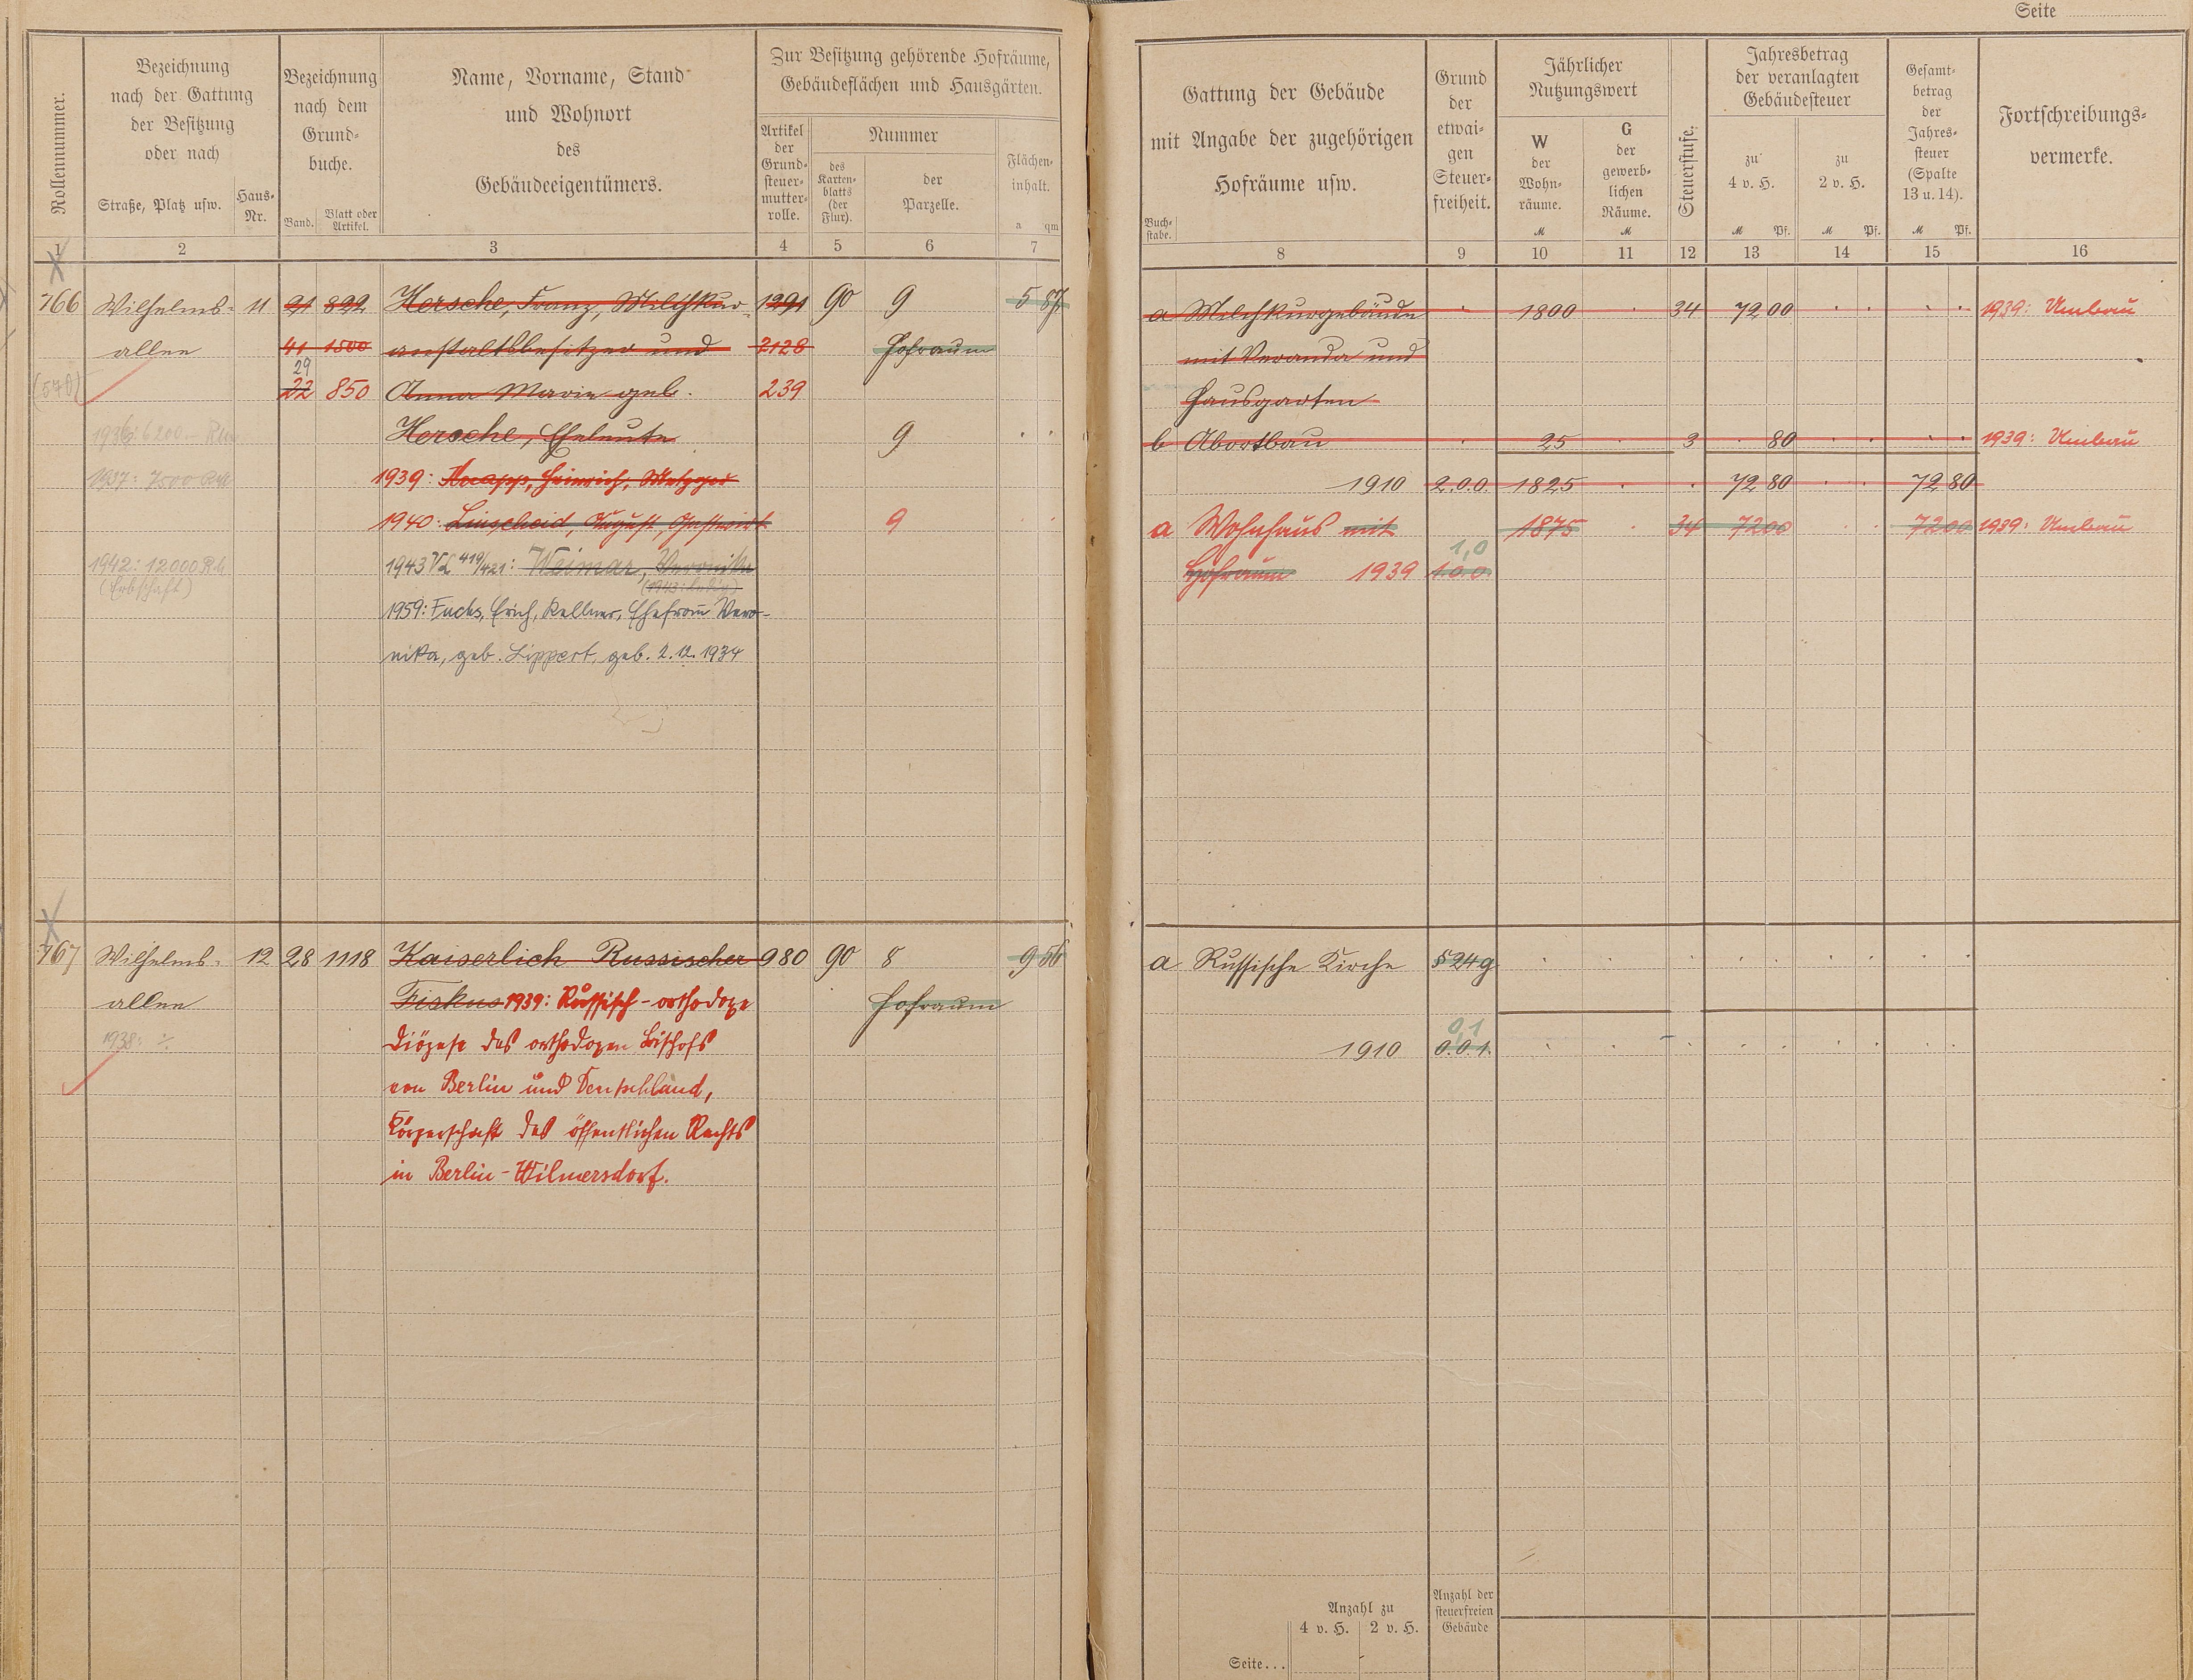 Seite
Rollennummer.
Bezeichnung
nach der Gattung
der Besitzung
oder nach
Straße, Platz usw.
Haus-
Nr.
Bezeichnung
nach dem
Grund-
buche.
Band.
Blatt oder
Artikel.
Name, Vorname, Stand
und Wohnort
des
Gebäudeeigentümers.
Zur Besitzung gehörende Hofräume,
Gebäudeflächen und Hausgärten.
Artikel
der
Grund-
steuer-
mutter-
rolle.
Nummer
des
Karten-
blatts
(der
Flur).
der
Parzelle.
Flächen-
inhalt.
a qm
1 2 3 4 5 6 7
766 Wilhelms- 11 21 822 Hersche, Franz, Milchkur- 1291 90 9 5 87
allee 41 1500 anstaltsbesitzer und 2128 Hofraum
29
(570) 22 850 Anna Marie geb. 239
1936: 6200.- RM Hersche, Eheleute 9
1937: 7500 RM 1939: Knapp, Heinrich, Metzger
1940: Linscheid, August, Gastwirt 9
1942: 12000 RM 1943 VL 419/421: Weimar, Veronika
(Erbschaft)
1959: Fuchs, Erich, Kellner, Ehefrau Vero-
nika, geb. Lippert, geb. 2.12.1934
767 Wilhelms- 12 28 1118 Kaiserlich Russischer 980 90 8 9 56
allee Fiskus 1939: Russisch-orthodoxe Hofraum
1938: ÷ Diözese des orthodoxen Bischofs
von Berlin und Deutschland,
Körperschaft des öffentlichen Rechts
in Berlin-Wilmersdorf.
Gattung der Gebäude
mit Angabe der zugehörigen
Hofräume usw.
Buch-
stabe.
Grund
der
etwai-
gen
Steuer-
freiheit.
Jährlicher
Nutzungswert
W
der
Wohn-
räume.
M
G
der
gewerb-
lichen
Räume.
M
Steuerstufe.
Jahresbetrag
der veranlagten
Gebäudesteuer
zu
4 v. H.
M Pf.
zu
2 v. H.
M Pf.
Gesamt-
betrag
der
Jahres-
steuer
(Spalte
13 u. 14).
M Pf.
Fortschreibungs-
vermerke.
8 9 10 11 12 13 14 15 16
a Milchkurgebäude 1800 34 72 00 1939: Umbau
mit Veranda und
Hausgarten
b Abortbau 25 3 80 1939: Umbau
1910 2.0.0. 1825 72 80 72 80
a Wohnhaus mit 1875 34 72 00 72 00 1939: Umbau
1,0
Hofraum 1939 1.0.0.
a Russische Kirche § 24g
0,1
1910 0.0.1.
Anzahl zu
4 v. H. 2 v. H.
Anzahl der
steuerfreien
Gebäude
Seite...